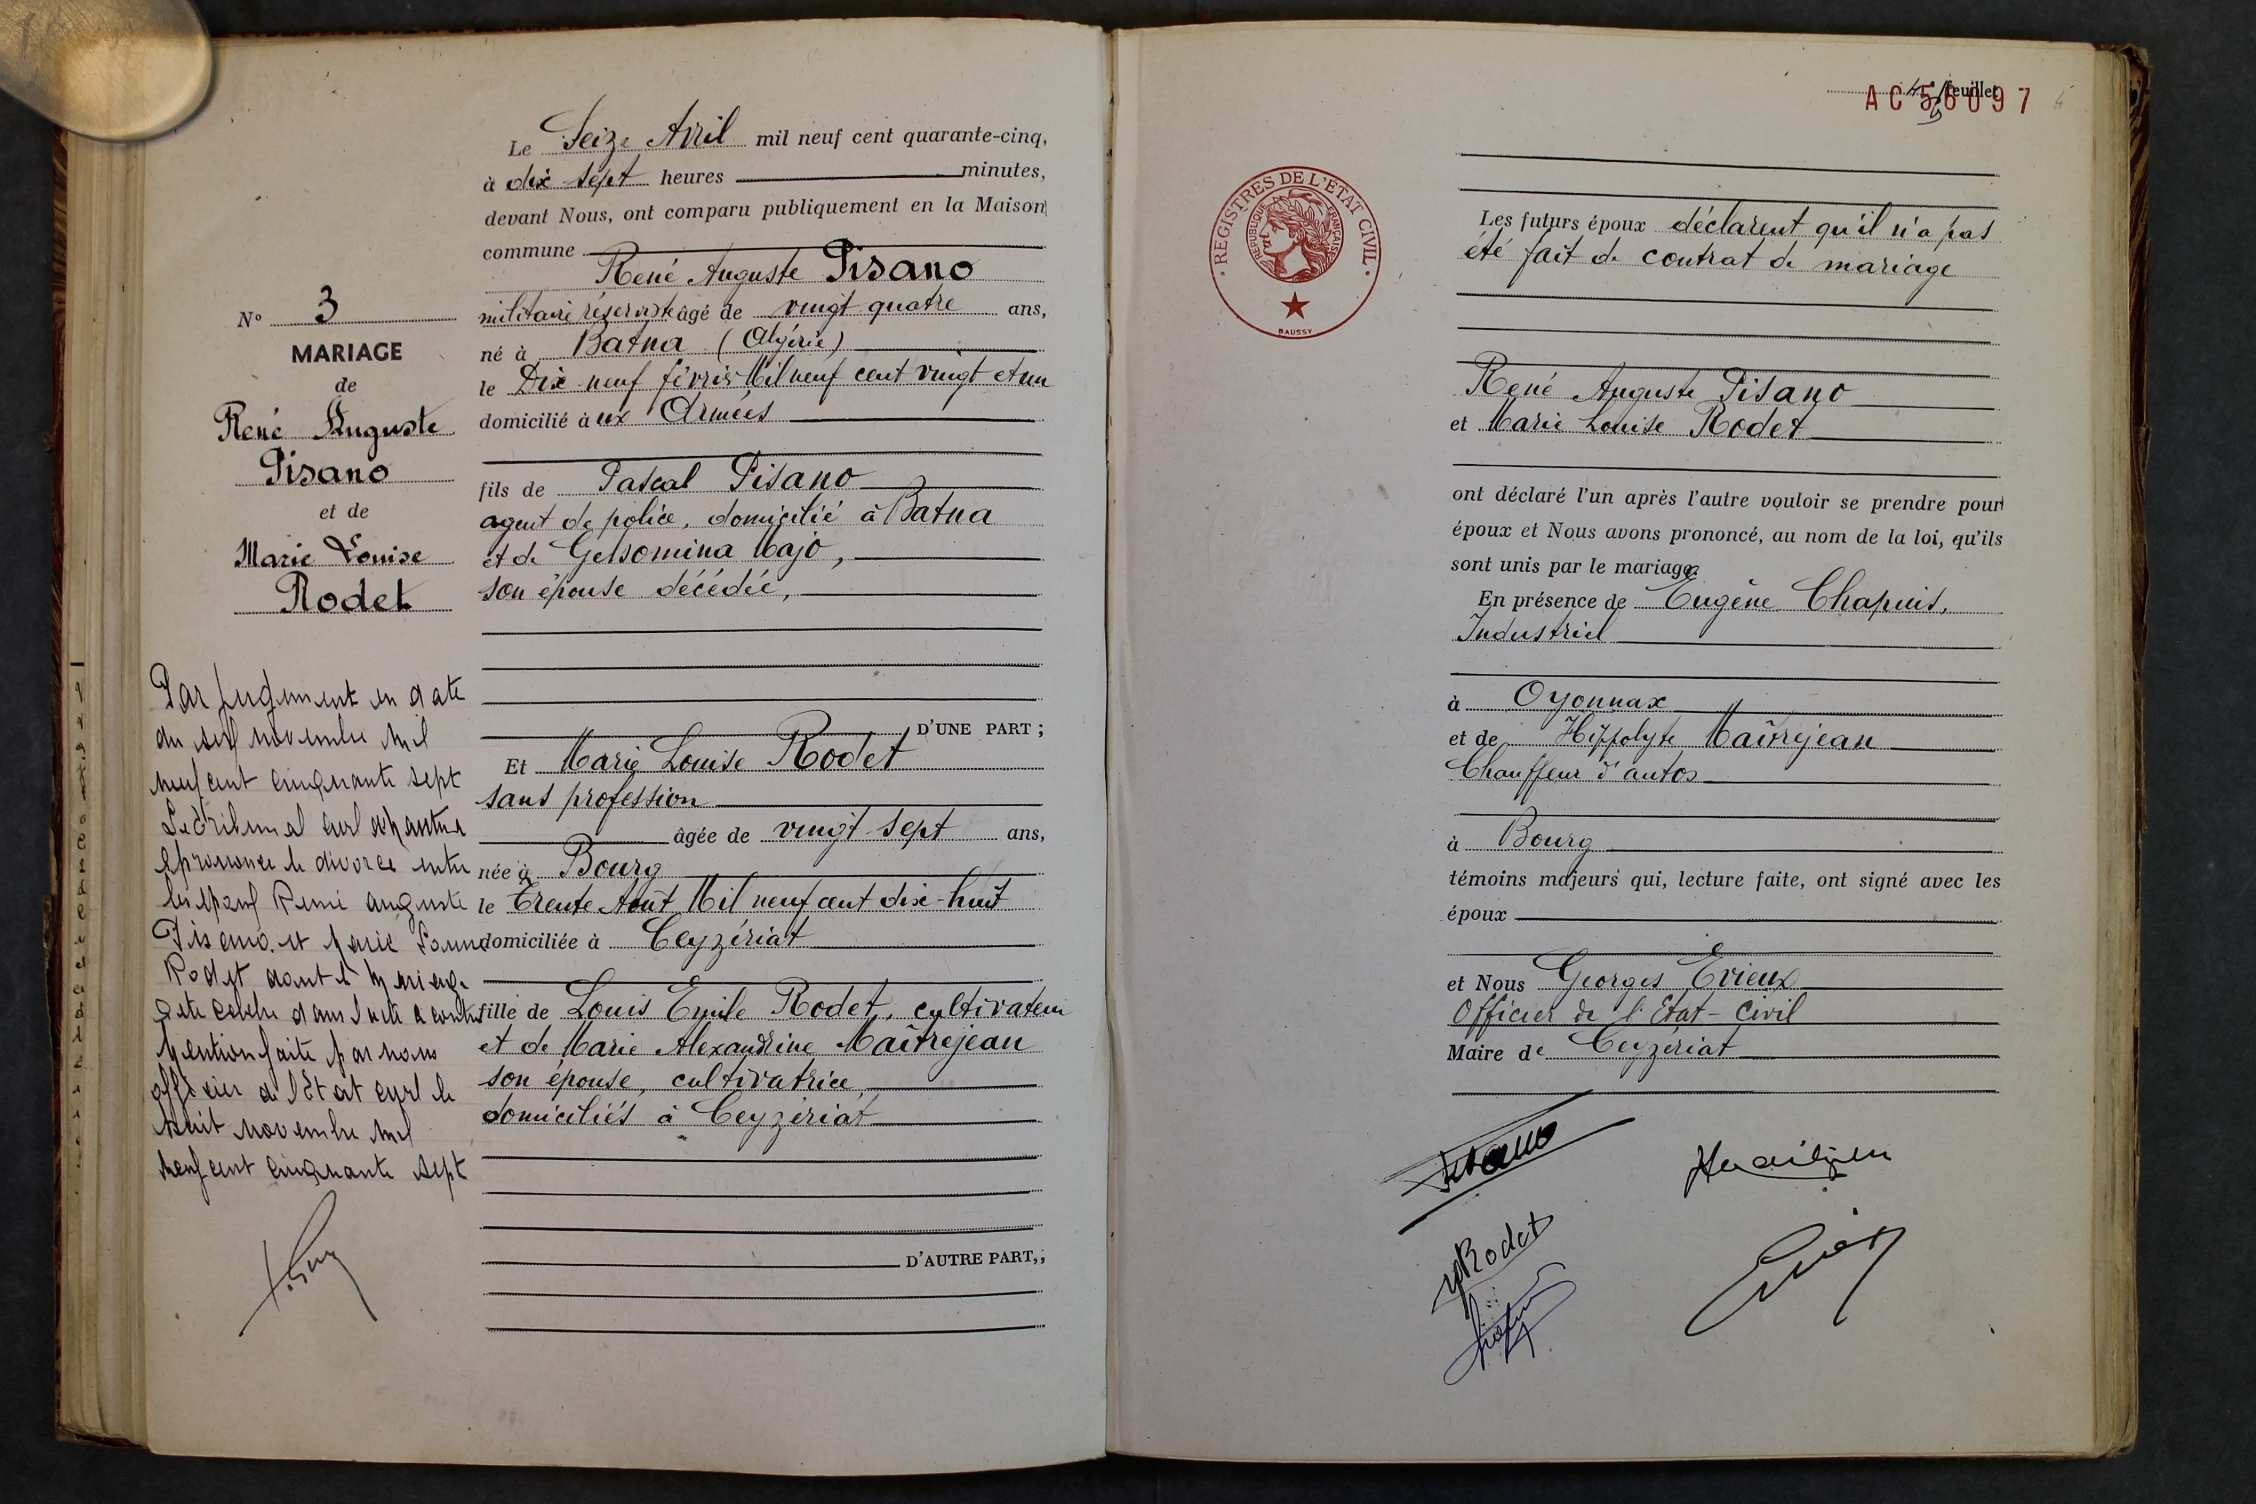 N° 3
MARIAGE
de
René Auguste
Pisano
et de
Marie Louise
Rodet
Par jugement en date
du six novembre mil
neuf cent cinquante sept
Le Tribunal civil de Nantua
a prononcé le divorce entre
les époux René Auguste
Pisano et Marie Louise
Rodet dont le mariage
a été célébré dans l'acte ci contre
Mention faite par nous
officier de l'Etat civil le
huit novembre mil
neuf cent cinquante sept
Le Seize Avril mil neuf cent quarante-cinq,
à dix sept heures minutes,
devant Nous, ont comparu publiquement en la Maison
commune
René Auguste Pisano
militaire réserviste âgé de vingt quatre ans,
né à Batna (Algérie)
le Dix neuf février Mil neuf cent vingt et un
domicilié aux Armées
fils de Pascal Pisano
agent de police, domicilié à Batna
et de Gelsomina Majo,
son épouse décédée,
D'UNE PART ;
Et Marie Louise Rodet
sans profession
âgée de vingt sept ans,
née à Bourg
le Trente Août Mil neuf cent dix-huit
domiciliée à Ceyzériat
fille de Louis Emile Rodet, cultivateur
et de Marie Alexandrine Maîtrejean
son épouse, cultivatrice,
domiciliés à Ceyzériat
D'AUTRE PART,;
feuillet
AC 56097
REGISTRES DE L'ETAT CIVIL
REPUBLIQUE FRANÇAISE
BAUSSY
Les futurs époux déclarent qu'il n'a pas
été fait de contrat de mariage
René Auguste Pisano
et Marie Louise Rodet
ont déclaré l'un après l'autre vouloir se prendre pour
époux et Nous avons prononcé, au nom de la loi, qu'ils
sont unis par le mariage.
En présence de Eugène Chapuis,
Industriel
à Oyonnax
et de Hippolyte Maîtrejean
Chauffeur d'autos
à Bourg
témoins majeurs qui, lecture faite, ont signé avec les
époux
et Nous Georges Evieux
Officier de l'Etat-Civil
Maire de Ceyzériat
Pisano
Rodet